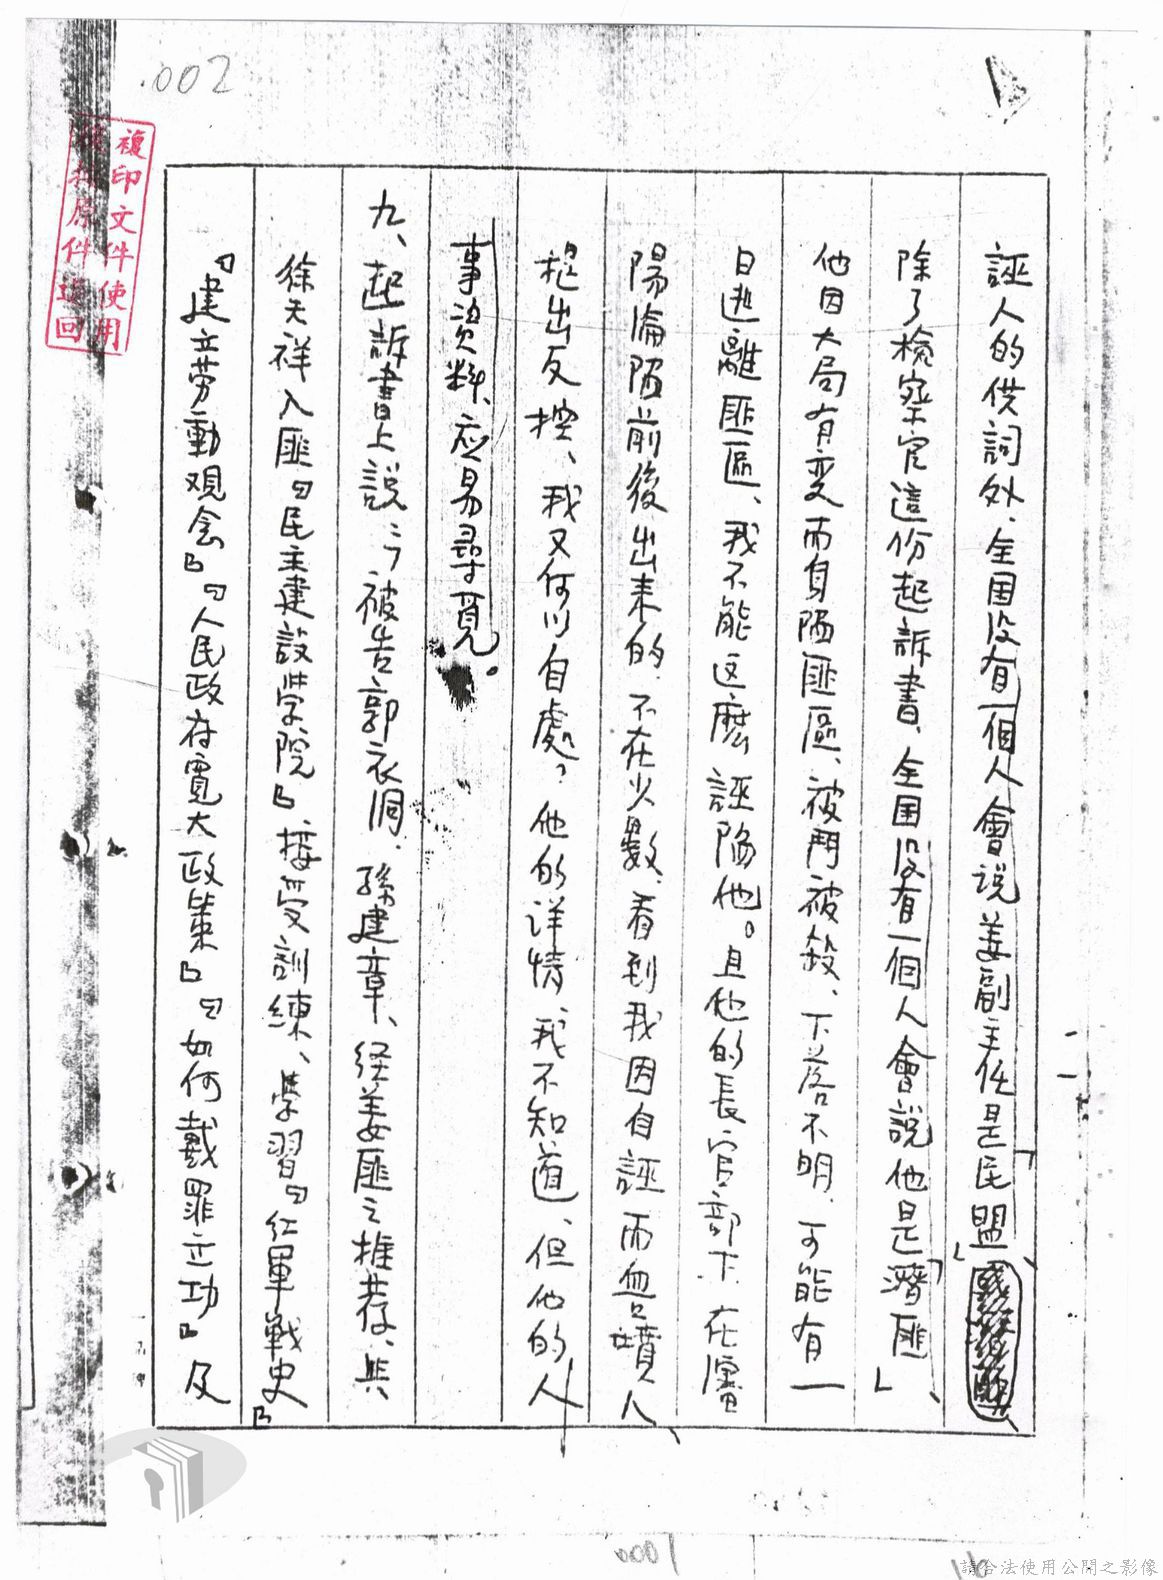 .002
複印文件使用
後投原件退回
誣人的供詞外、全国没有一個人會说姜副主任是「民盟」、
除了檢察官這份起訴書、全国没有一個人會說他是「潛匪」、
他因大局有变而身陷匪區、被鬥被殺、下落不明、可能有一
日逃離匪區、我不能这麽誣陷他。且他的長官部下、在瀋
陽淪陷前後出来的、不在少數、看到我因自誣而血口噴人、
提出反控、我又何以自處？他的详情、我不知道、但他的人
事資料、应易尋覓。
九、起訴書上説：「被告郭衣洞、孫建章、经姜匪之推荐、與
徐天祥入匪『民主建設学院』接受訓練、學習『红軍戰史』
『建立劳動观念』『人民政府寬大政策』『如何戴罪立功』及
請合法使用公開之影像